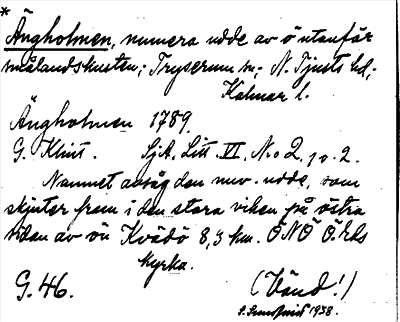 *
Ängholmen, numera udde av ö utanför
smålandskusten; Tryserum sn; N. Tjusts hd;
Kalmar l.
Ängholmen 1789.
G. Klint. SjA. Litt. VI. No 2, p. 2.
Namnet avsåg den nuv. udde, som
skjuter fram i den stora viken på östra
sidan av ön Kvädö 8,3 km. ÖNÖ Ö. Eds
kyrka.
G. 46. (Vänd!)
1938.